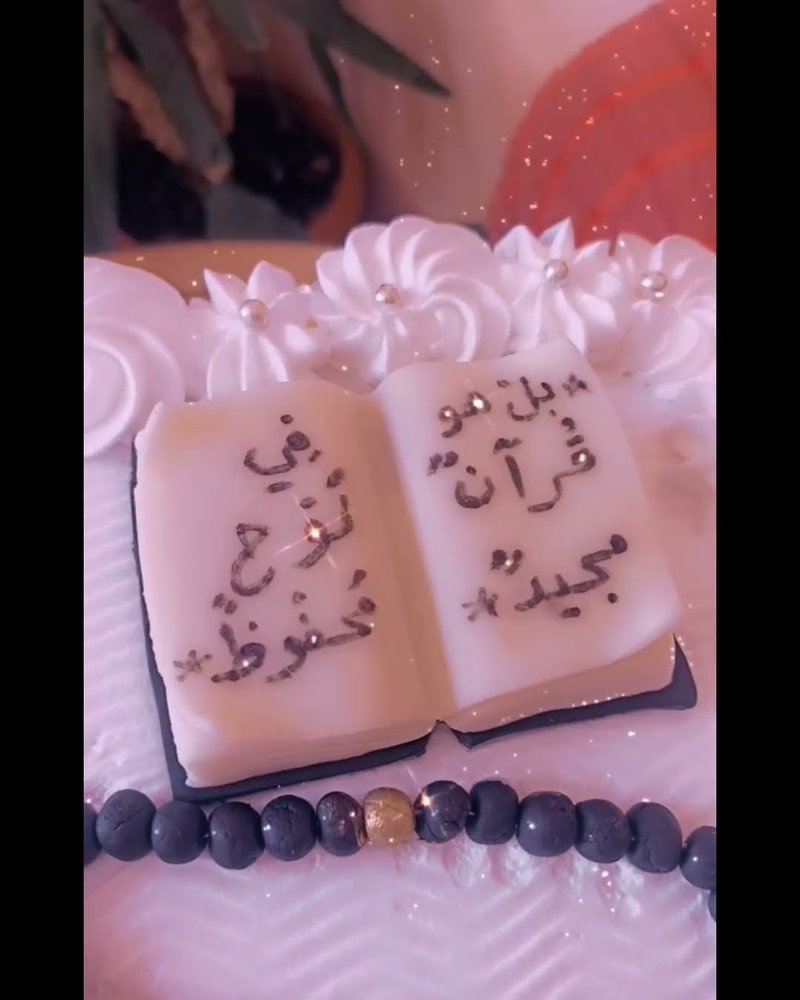 * بل هو
قُرآنٌ
مجيدٌ *
فِي
لَوْحٍ
مَحْفُوظٍ *